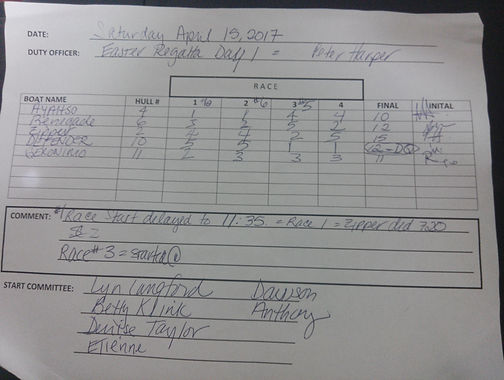 DATE: Saturday April 15, 2017
DUTY OFFICER: Easter Regatta Day 1 = Peter Harper
RACE
BOAT NAME HULL # 1 #6 2 #6 3 #5 4 FINAL INITAL
AYAHSO 4 1 1 4 4 10
Renegade 6 3 2 12
Zipper 2 4 4 2 5 15
DEFENDER 10 5 5 1 1 12-DQ
GERONIMO 11 2 3 3 3 11
COMMENT: #1 Race Start delayed to 11:35. = Race 1 = Zipper did 720
Race # 3 = started @
START COMMITTEE: Lyn Langford Dawson
Betty Klink Anthony
Denise Taylor
Etienne